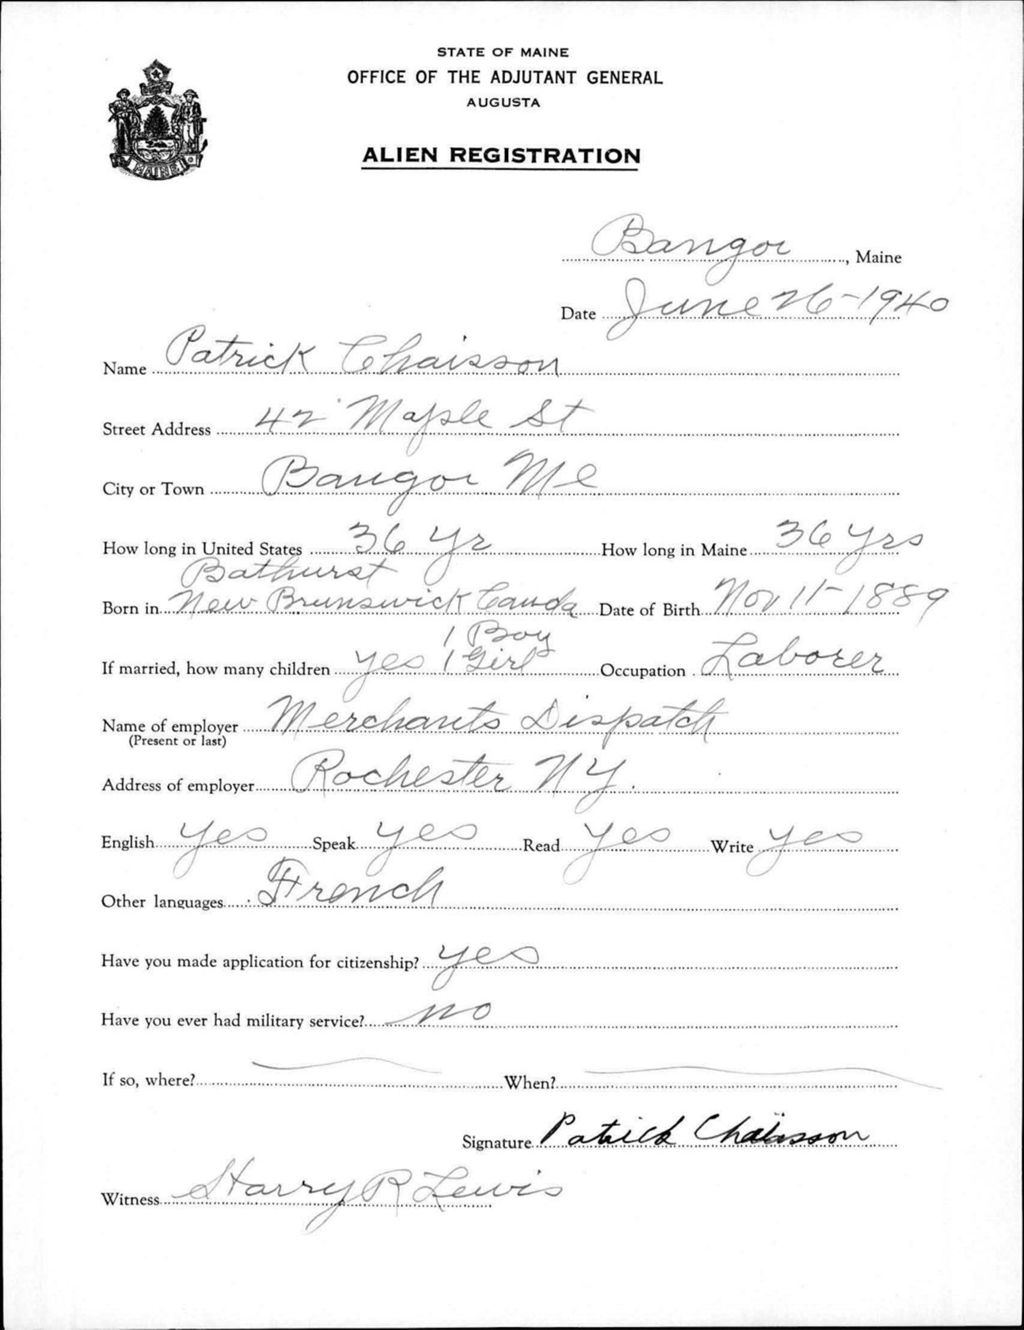 STATE OF MAINE
OFFICE OF THE ADJUTANT GENERAL
AUGUSTA
ALIEN REGISTRATION
MAINE
Bangor, Maine
Date June 26-1940
Name Patrick Chaisson
Street Address 42 Maple St
City or Town Bangor Me
How long in United States 36 Yr How long in Maine 36 Yrs
Bathurst
Born in New Brunswick Canda Date of Birth Nov 11-1889
1 Boy
If married, how many children yes 1 Girl Occupation Laborer
Name of employer Merchants Dispatch
(Present or last)
Address of employer Rochester NY.
English Yes Speak yes Read Yes Write yes
Other languages French
Have you made application for citizenship? yes
Have you ever had military service? no
If so, where? When?
Signature Patrick Chaisson
Witness Harry R Lewis